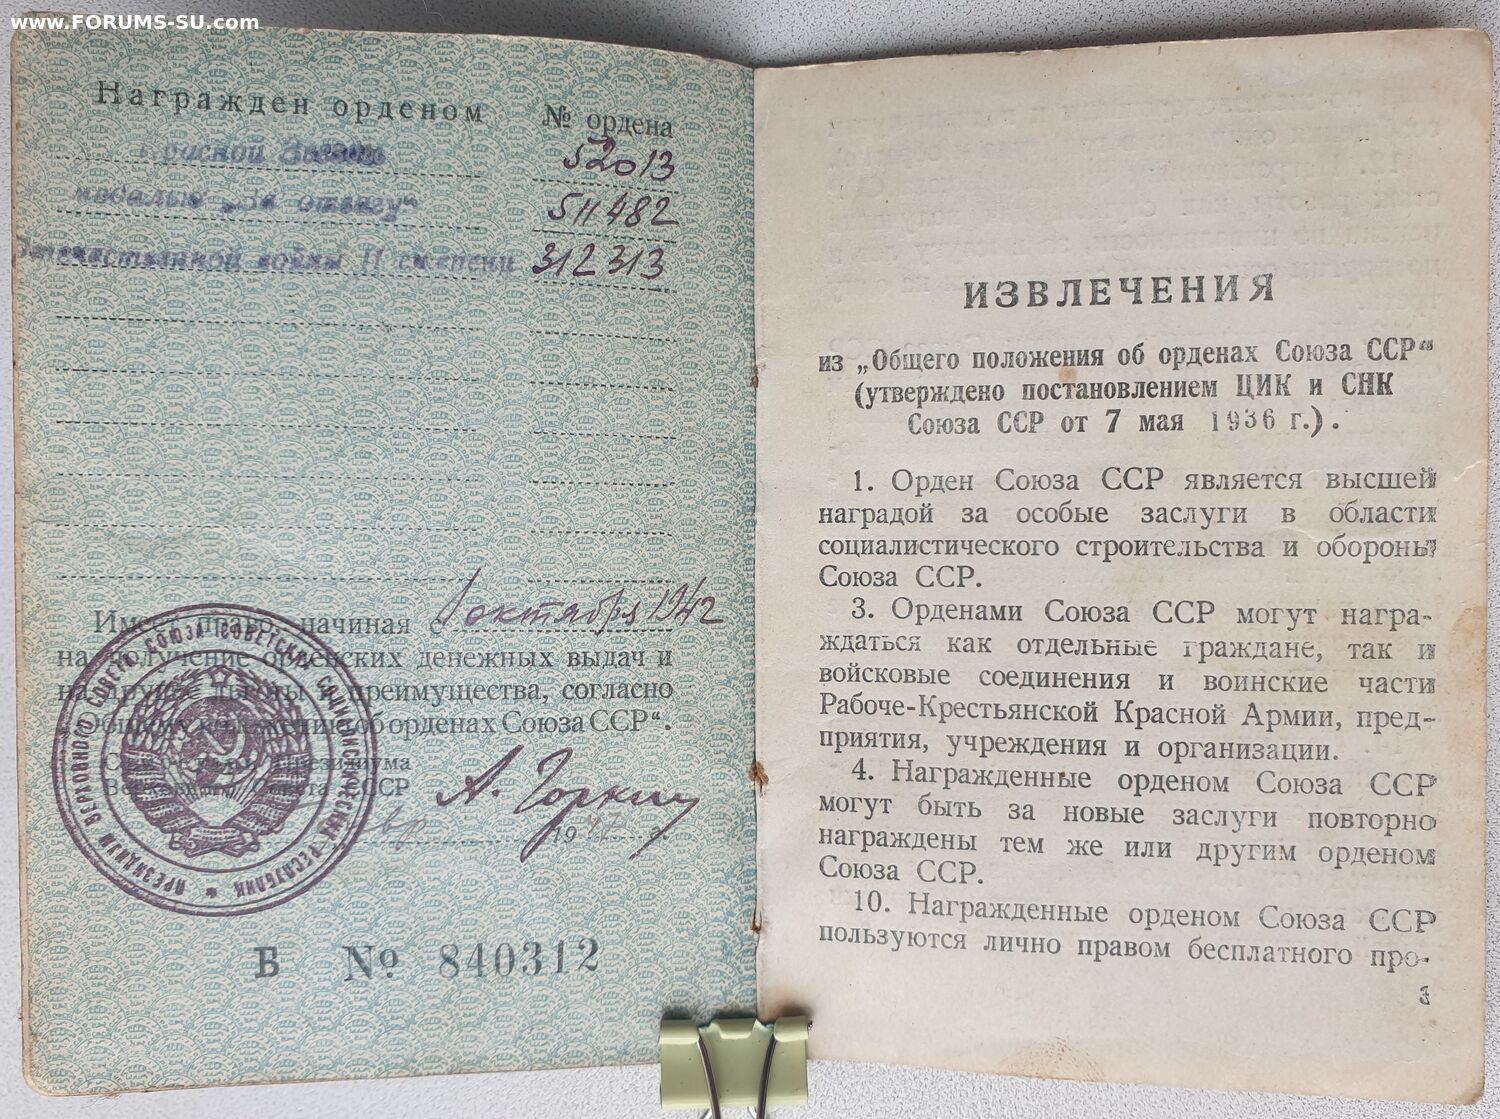 www.FORUMS-SU.com
Награжден орденом № ордена
Красной Звезды 52013
медалью „За отвагу“ 511482
Отечественной войны II степени 312313
Имеет право, начиная с 1 октября 1942
на получение орденских денежных выдач и
на другие льготы и преимущества, согласно
„Общему положению об орденах Союза ССР“.
Секретарь Президиума
Верховного Совета СССР
А. Горкин
1947 г.
ПРЕЗИДИУМ ВЕРХОВНОГО СОВЕТА СОЮЗА СОВЕТСКИХ СОЦИАЛИСТИЧЕСКИХ РЕСПУБЛИК
Б № 840312
ИЗВЛЕЧЕНИЯ
из „Общего положения об орденах Союза ССР“
(утверждено постановлением ЦИК и СНК
Союза ССР от 7 мая 1936 г.).
1. Орден Союза ССР является высшей
наградой за особые заслуги в области
социалистического строительства и обороны
Союза ССР.
3. Орденами Союза ССР могут награ-
ждаться как отдельные граждане, так и
войсковые соединения и воинские части
Рабоче-Крестьянской Красной Армии, пред-
приятия, учреждения и организации.
4. Награжденные орденом Союза ССР
могут быть за новые заслуги повторно
награждены тем же или другим орденом
Союза ССР.
10. Награжденные орденом Союза ССР
пользуются лично правом бесплатного про-
3